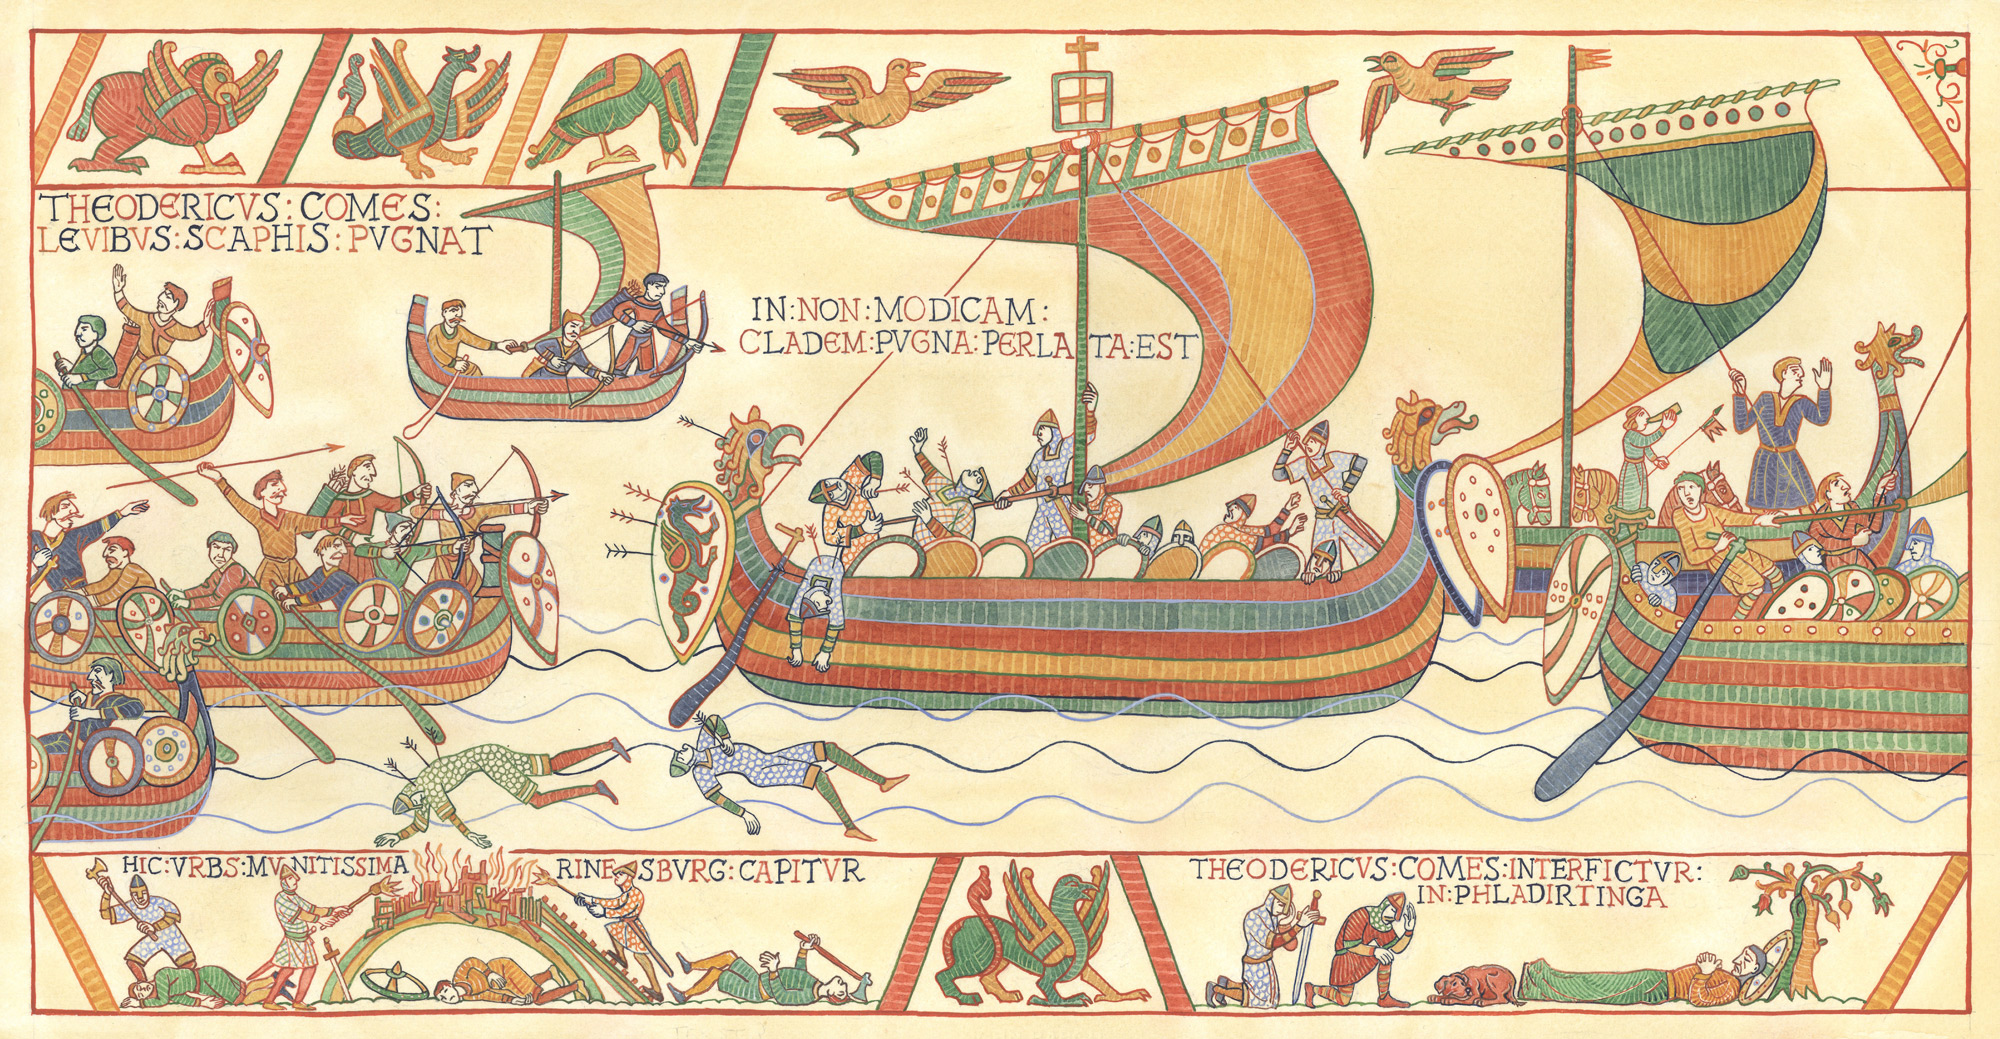 THEODERICVS : COMES :
LEVIBVS : SCAPHIS : PVGNAT
IN : NON : MODICAM :
CLADEM : PVGNA : PERLATA : EST
HIC : VRBS : MVNITISSIMA RINESBVRG : CAPITVR
THEODERICVS : COMES : INTERFICTVR :
IN : PHLADIRTINGA